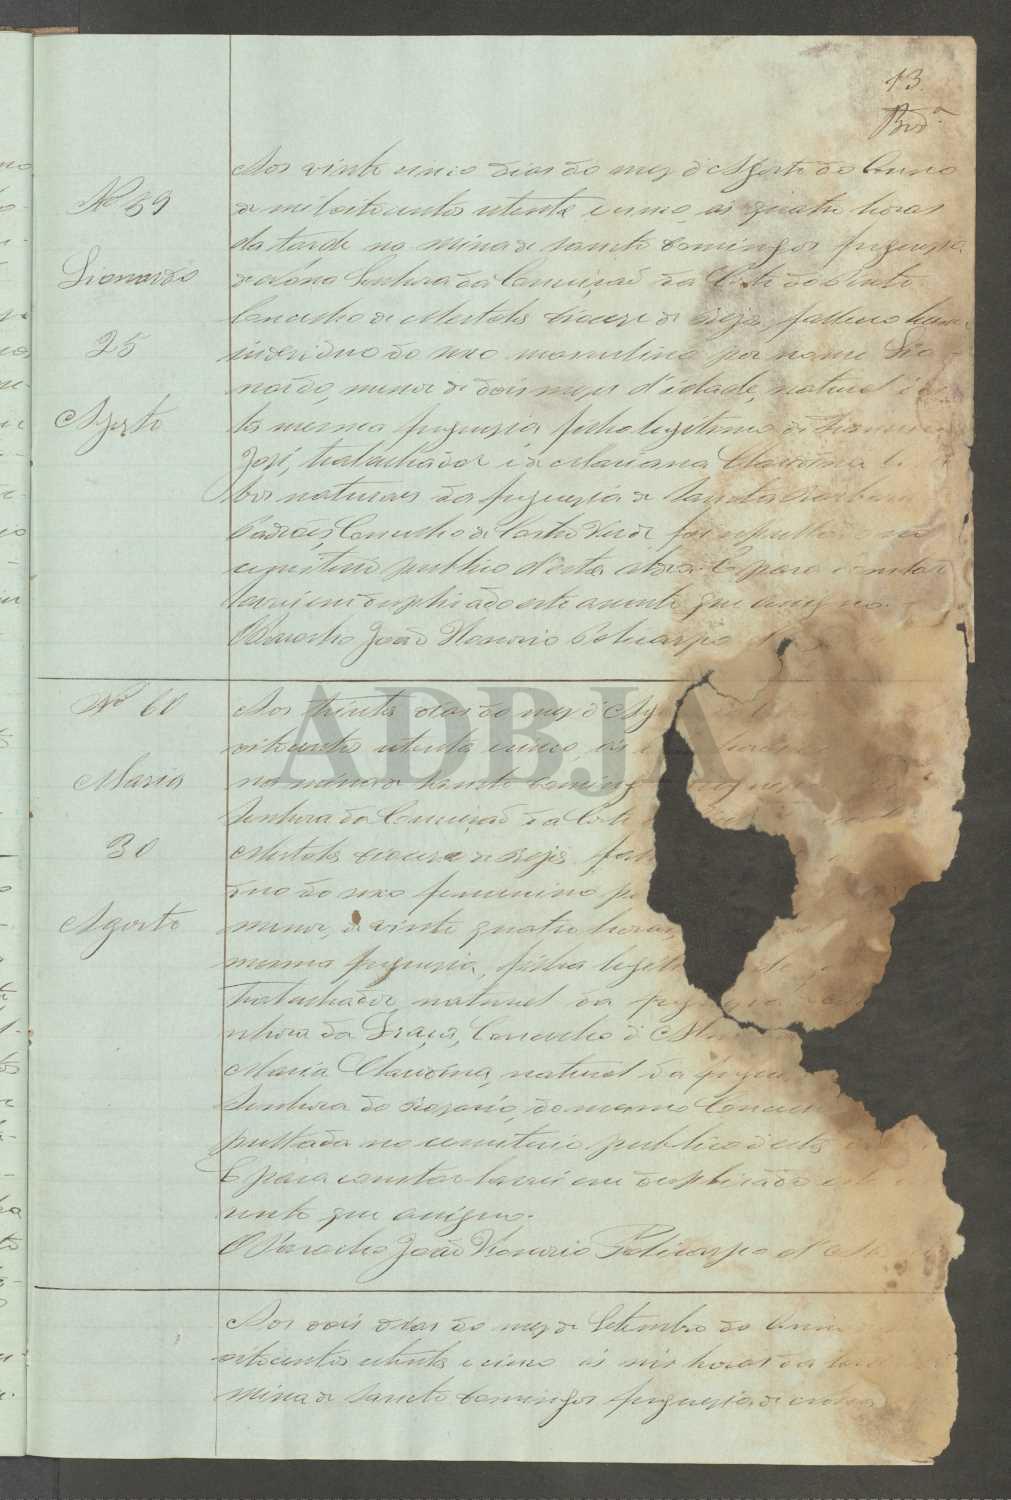 13
Nº 59
Lionardo
25
Agosto
Aos vinte cinco dias do mez d'Agosto do Anno
de mil oitocentos oitenta e cinco, ás quatro horas
da tarde na mina de Sancto Domingos freguezia
de Nossa Senhora da Conceição da Corte do Pinto
Concelho de Mertola diocese de Beja, falleceu hum
individuo do sexo masculino por nome Lio-
nardo, menor de dois mezes d'idade, natural
ta mesma freguezia, filho legitimo de
José, trabalhador e de Marianna Claudina
bos naturaes da freguezia de Sancta Barbara
Padrões, Concelho de Castro Verde foi sepultado no
cemiterio publico d'esta aldeia. E para constar
lavrei em duplicado este assento que assigno.
O Parocho João Honorio Policarpo
Nº 60
Maria
30
Agosto
Aos trinta dias do mez d'Ag
oitocentos oitenta e cinco, ás
na mina de Sancto Doming
Senhora da Conceição da Corte
Mertola diocese de Beja, fal
duo do sexo femenino p
menor, de vinte quatro horas,
mesma freguezia, filha legit
trabalhador, natural da freguezia
nhora da Graça, Concelho d
Maria Claudina, natural da fregu
Senhora do Rosario, do mesmo Concel
pultada no cemiterio publico d'esta
E para constar lavrei em duplicado este
sento que assigno.
O Parocho João Honorio Policarpo d'
Aos dois dias do mez de Setembro do Anno
oitocentos oitenta e cinco ás seis horas da tarde
mina de Sancto Domingos freguezia de Nossa
ADBJA